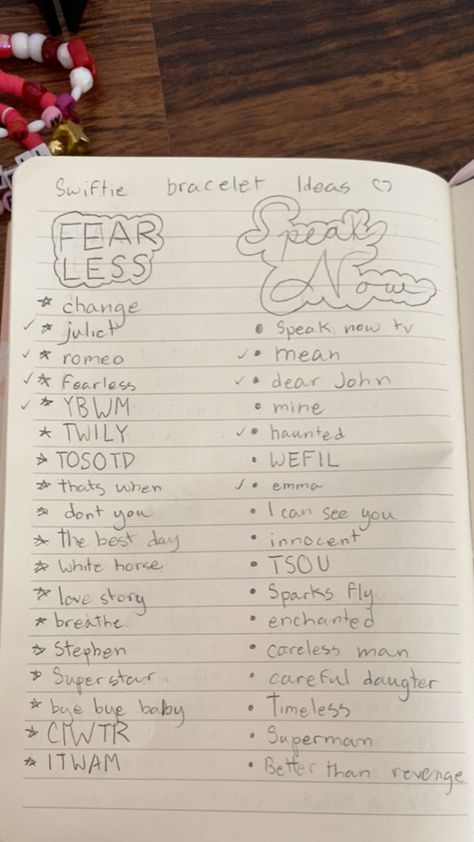 Swiftie bracelet Ideas ♡
FEAR
LESS
☆ change
✓ ☆ juliet
✓ ☆ romeo
✓ ☆ Fearless
✓ ☆ YBWM
☆ TWILY
☆ TOSOTD
☆ thats when
☆ dont you
☆ the best day
☆ White horse
☆ love story
☆ breathe
☆ Stephen
☆ Superstar
☆ bye bye baby
☆ CIWTR
☆ ITWAM
Speak
Now
• Speak now tv
✓ • mean
✓ • dear John
• mine
✓ • haunted
• WEFIL
✓ • emma
• I can see you
• innocent
• TSOU
• Sparks fly
• enchanted
• careless man
• careful daugter
• Timeless
• Superman
• Better than revenge